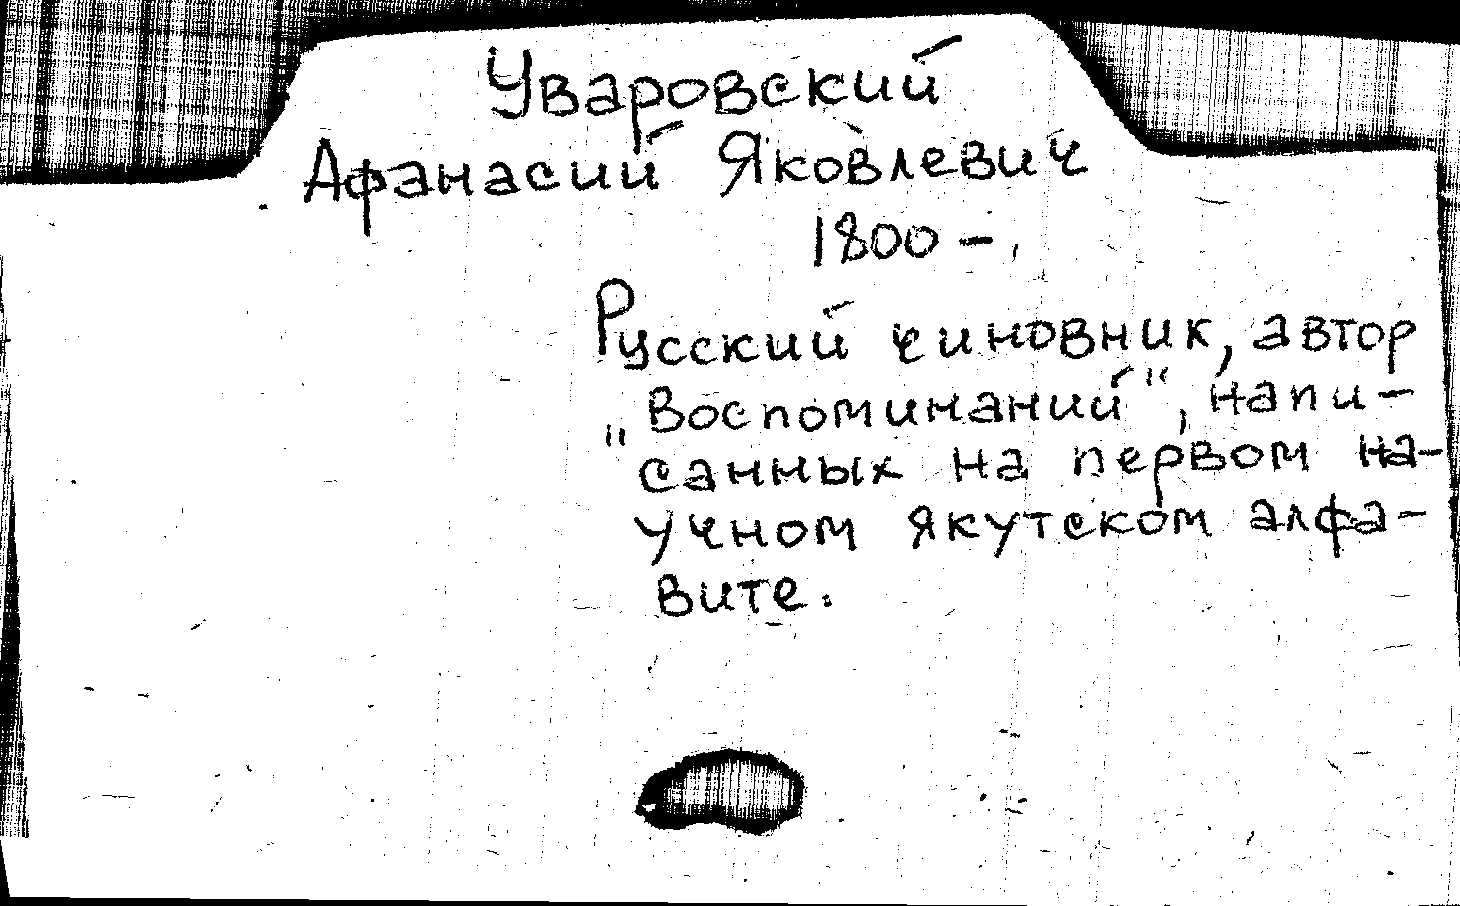 Уваровский
Афанасий Яковлевич
1800 –
Русский чиновник, автор
„Воспоминаний“, напи-
санных на первом на-
учном якутском алфа-
вите.